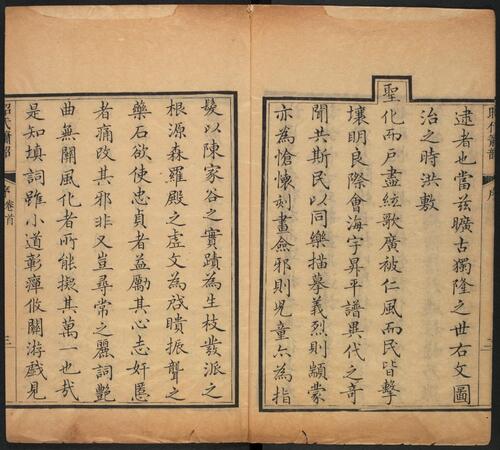 逮者也當茲曠古獨隆之世右文圖
治之時洪敷
聖化而戶盡絃歌廣被仁風而民皆擊
壤明良際會海宇昇平譜異代之奇
聞共斯民以同樂描摹義烈則顓蒙
亦為愴懷刻畫僉邪則児童亦為指
髮以陳家谷之實蹟為生枝發派之
根源森羅殿之虛文為發聵振聾之
藥石欲使忠貞者益勵其心志奸慝
者痛改其邪非又豈尋常之麗詞艷
曲無關風化者所能擬其萬一也哉
是知填詞雖小道彰癉攸關游戲見
昭代簫韶
序 卷首
三